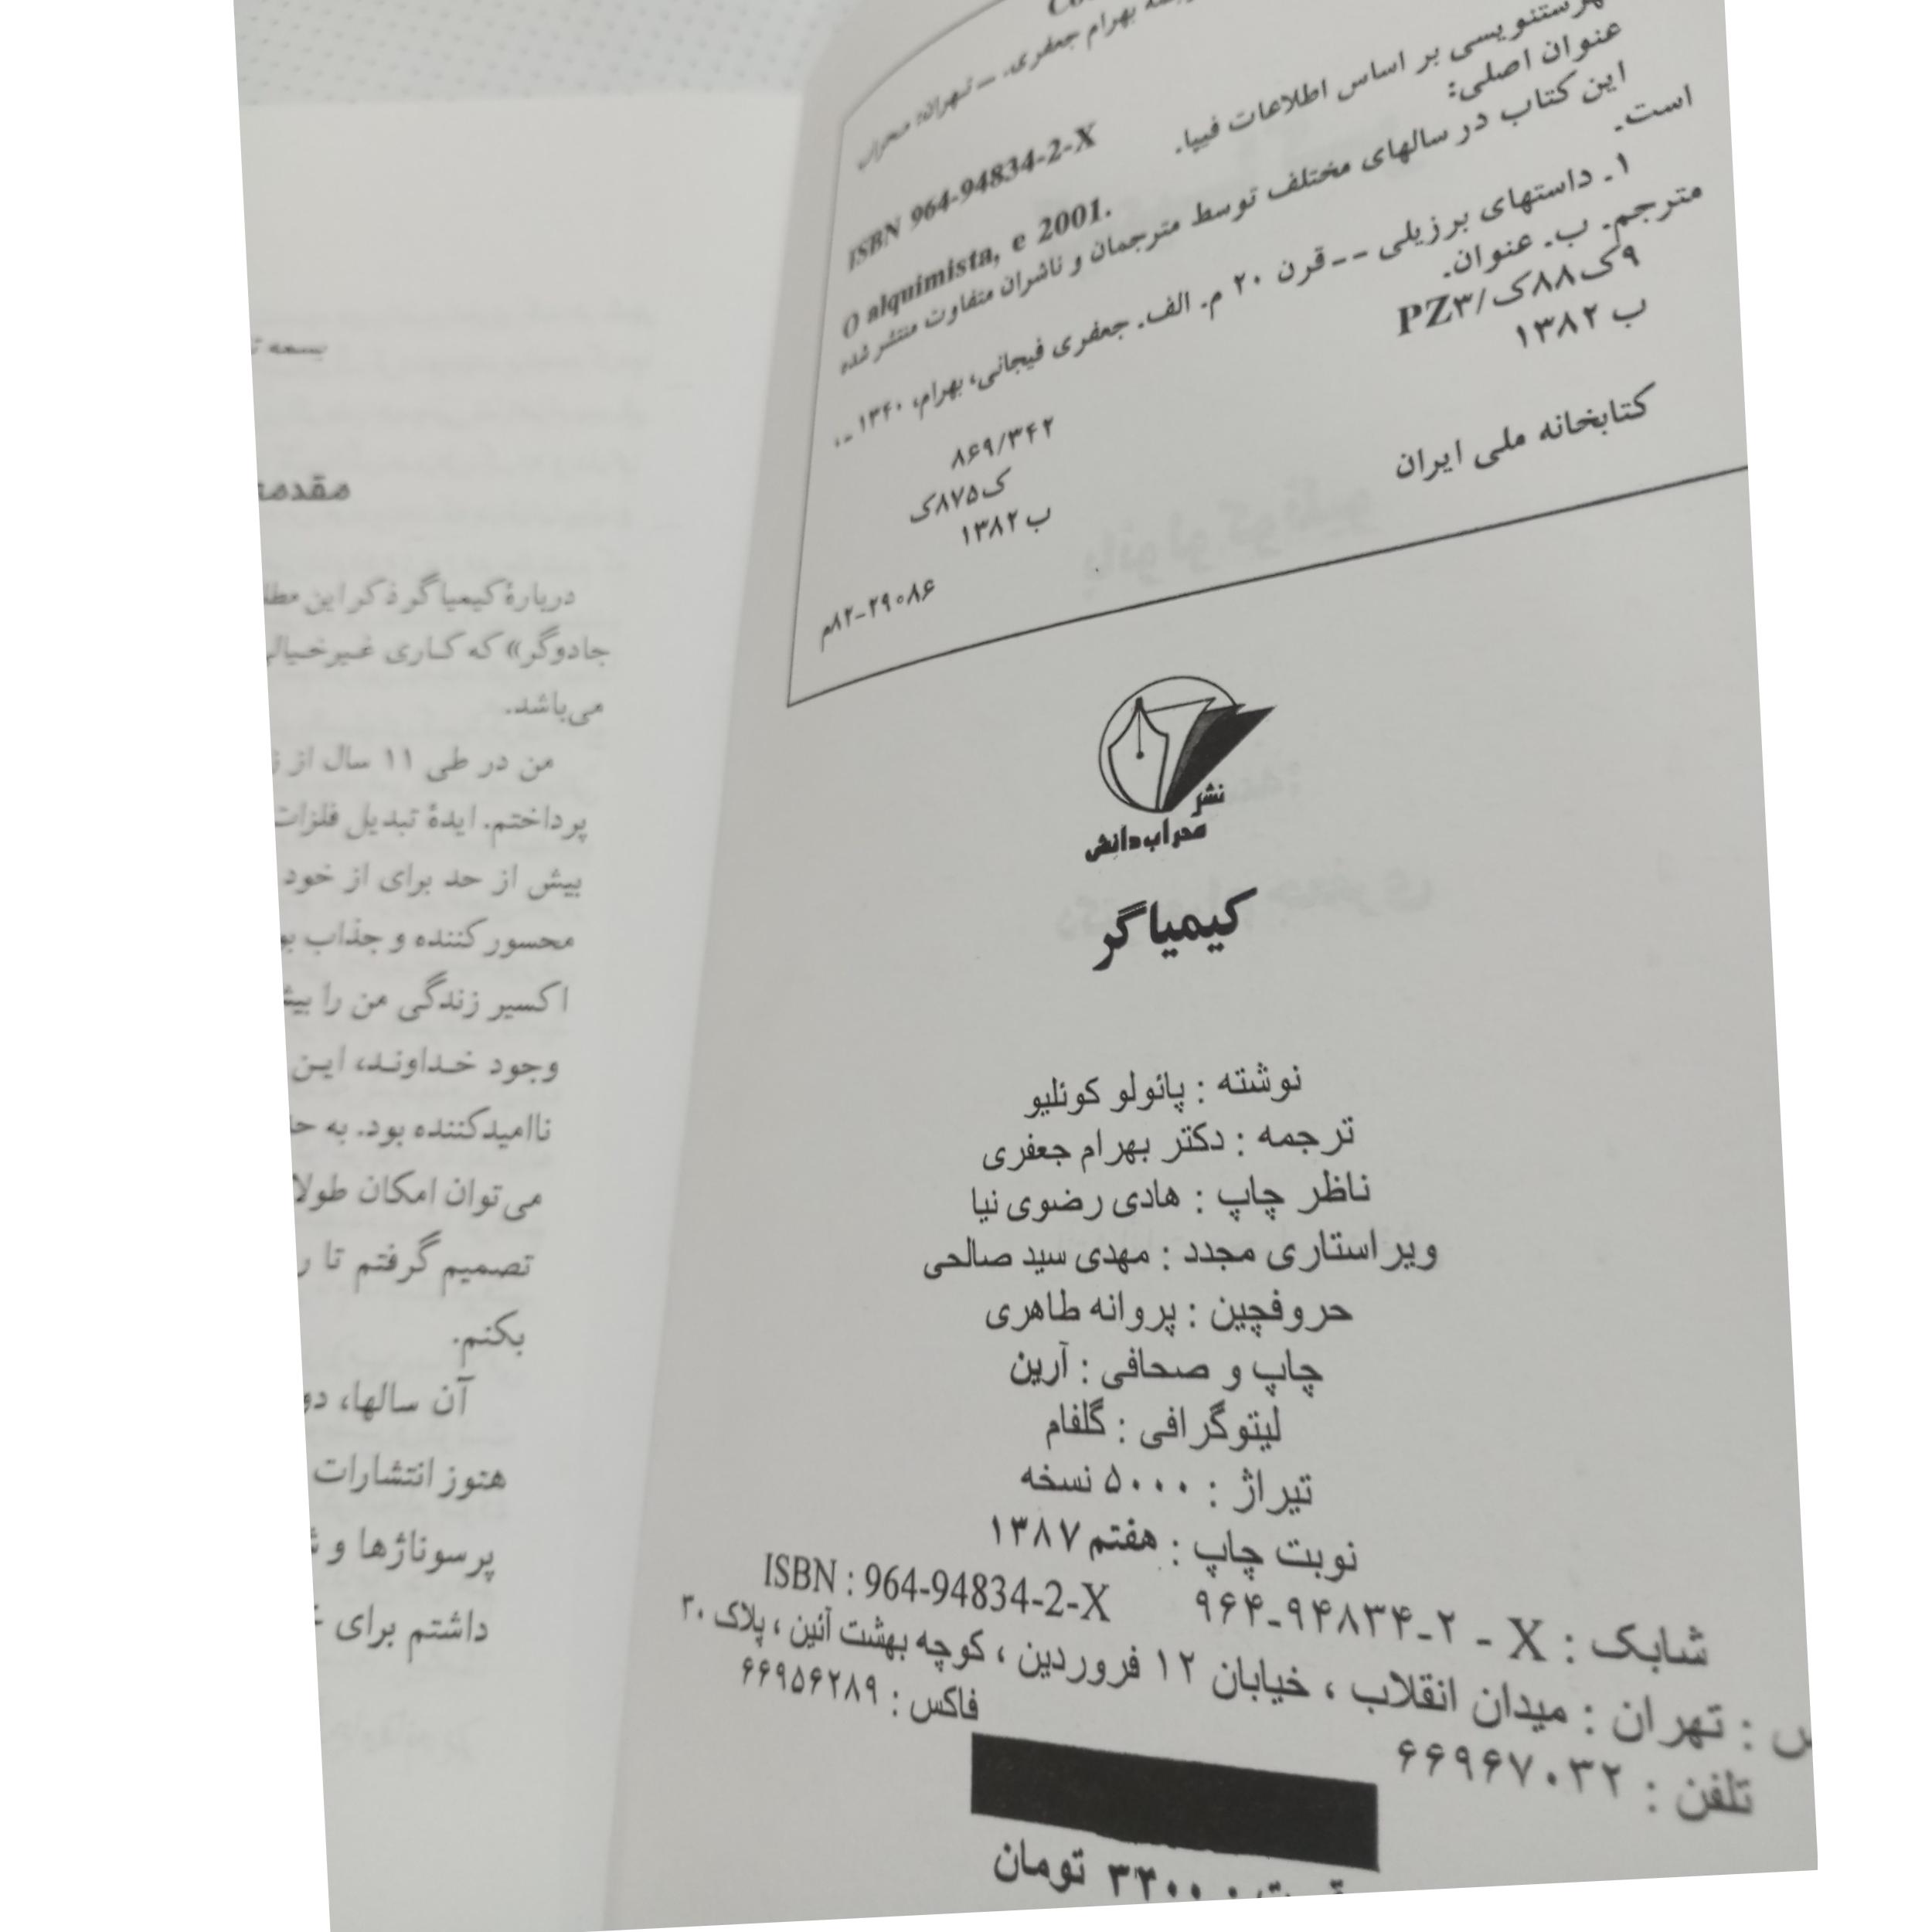 بهرام جعفری. ــ تهران: محراب
ISBN 964-94834-2-X
فهرستنویسی بر اساس اطلاعات فیپا.
عنوان اصلی:
O alquimista, e 2001.
این کتاب در سالهای مختلف توسط مترجمان و ناشران متفاوت منتشر شده
است.
۱ـ داستهای برزیلی -- قرن ۲۰ م. الف. جعفری فیجانی، بهرام، ۱۳۴۰ ـ ،
مترجم. ب. عنوان.
۹ک۸۸ک/PZ۳
ب ۱۳۸۲
۸۶۹/۳۴۲
ک۸۷۵ک
ب ۱۳۸۲
کتابخانه ملی ایران
۸۲-۲۹۰۸۶م
نشر
محراب دانش
کیمیاگر
نوشته : پائولو کوئلیو
ترجمه : دکتر بهرام جعفری
ناظر چاپ : هادی رضوی نیا
ویراستاری مجدد : مهدی سید صالحی
حروفچین : پروانه طاهری
چاپ و صحافی : آرین
لیتوگرافی : گلفام
تیراژ : ۵۰۰۰ نسخه
نوبت چاپ : هفتم ۱۳۸۷
شابک : X - ۲-۹۴۸۳۴-۹۶۴ ISBN : 964-94834-2-X
: تهران : میدان انقلاب ، خیابان ۱۲ فروردین ، کوچه بهشت آئین ، پلاک ۳۰
تلفن : ۶۶۹۶۷۰۳۲ فاکس : ۶۶۹۵۶۲۸۹
۳۲۰۰ تومان
بسمه
مقدمه
دربارهٔ کیمیاگر ذکر این
جادوگر» که کاری غیرخیالی
می‌باشد.
من در طی ۱۱ سال از
پرداختم. ایدهٔ تبدیل فلزات
بیش از حد برای از خود
محسور کننده و جذاب
اکسیر زندگی من را
وجود خداوند، این
ناامیدکننده بود. به
می‌توان امکان
تصمیم گرفتم تا
بکنم.
آن سالها،
هنوز انتشارات
پرسوناژها و
داشتم برای